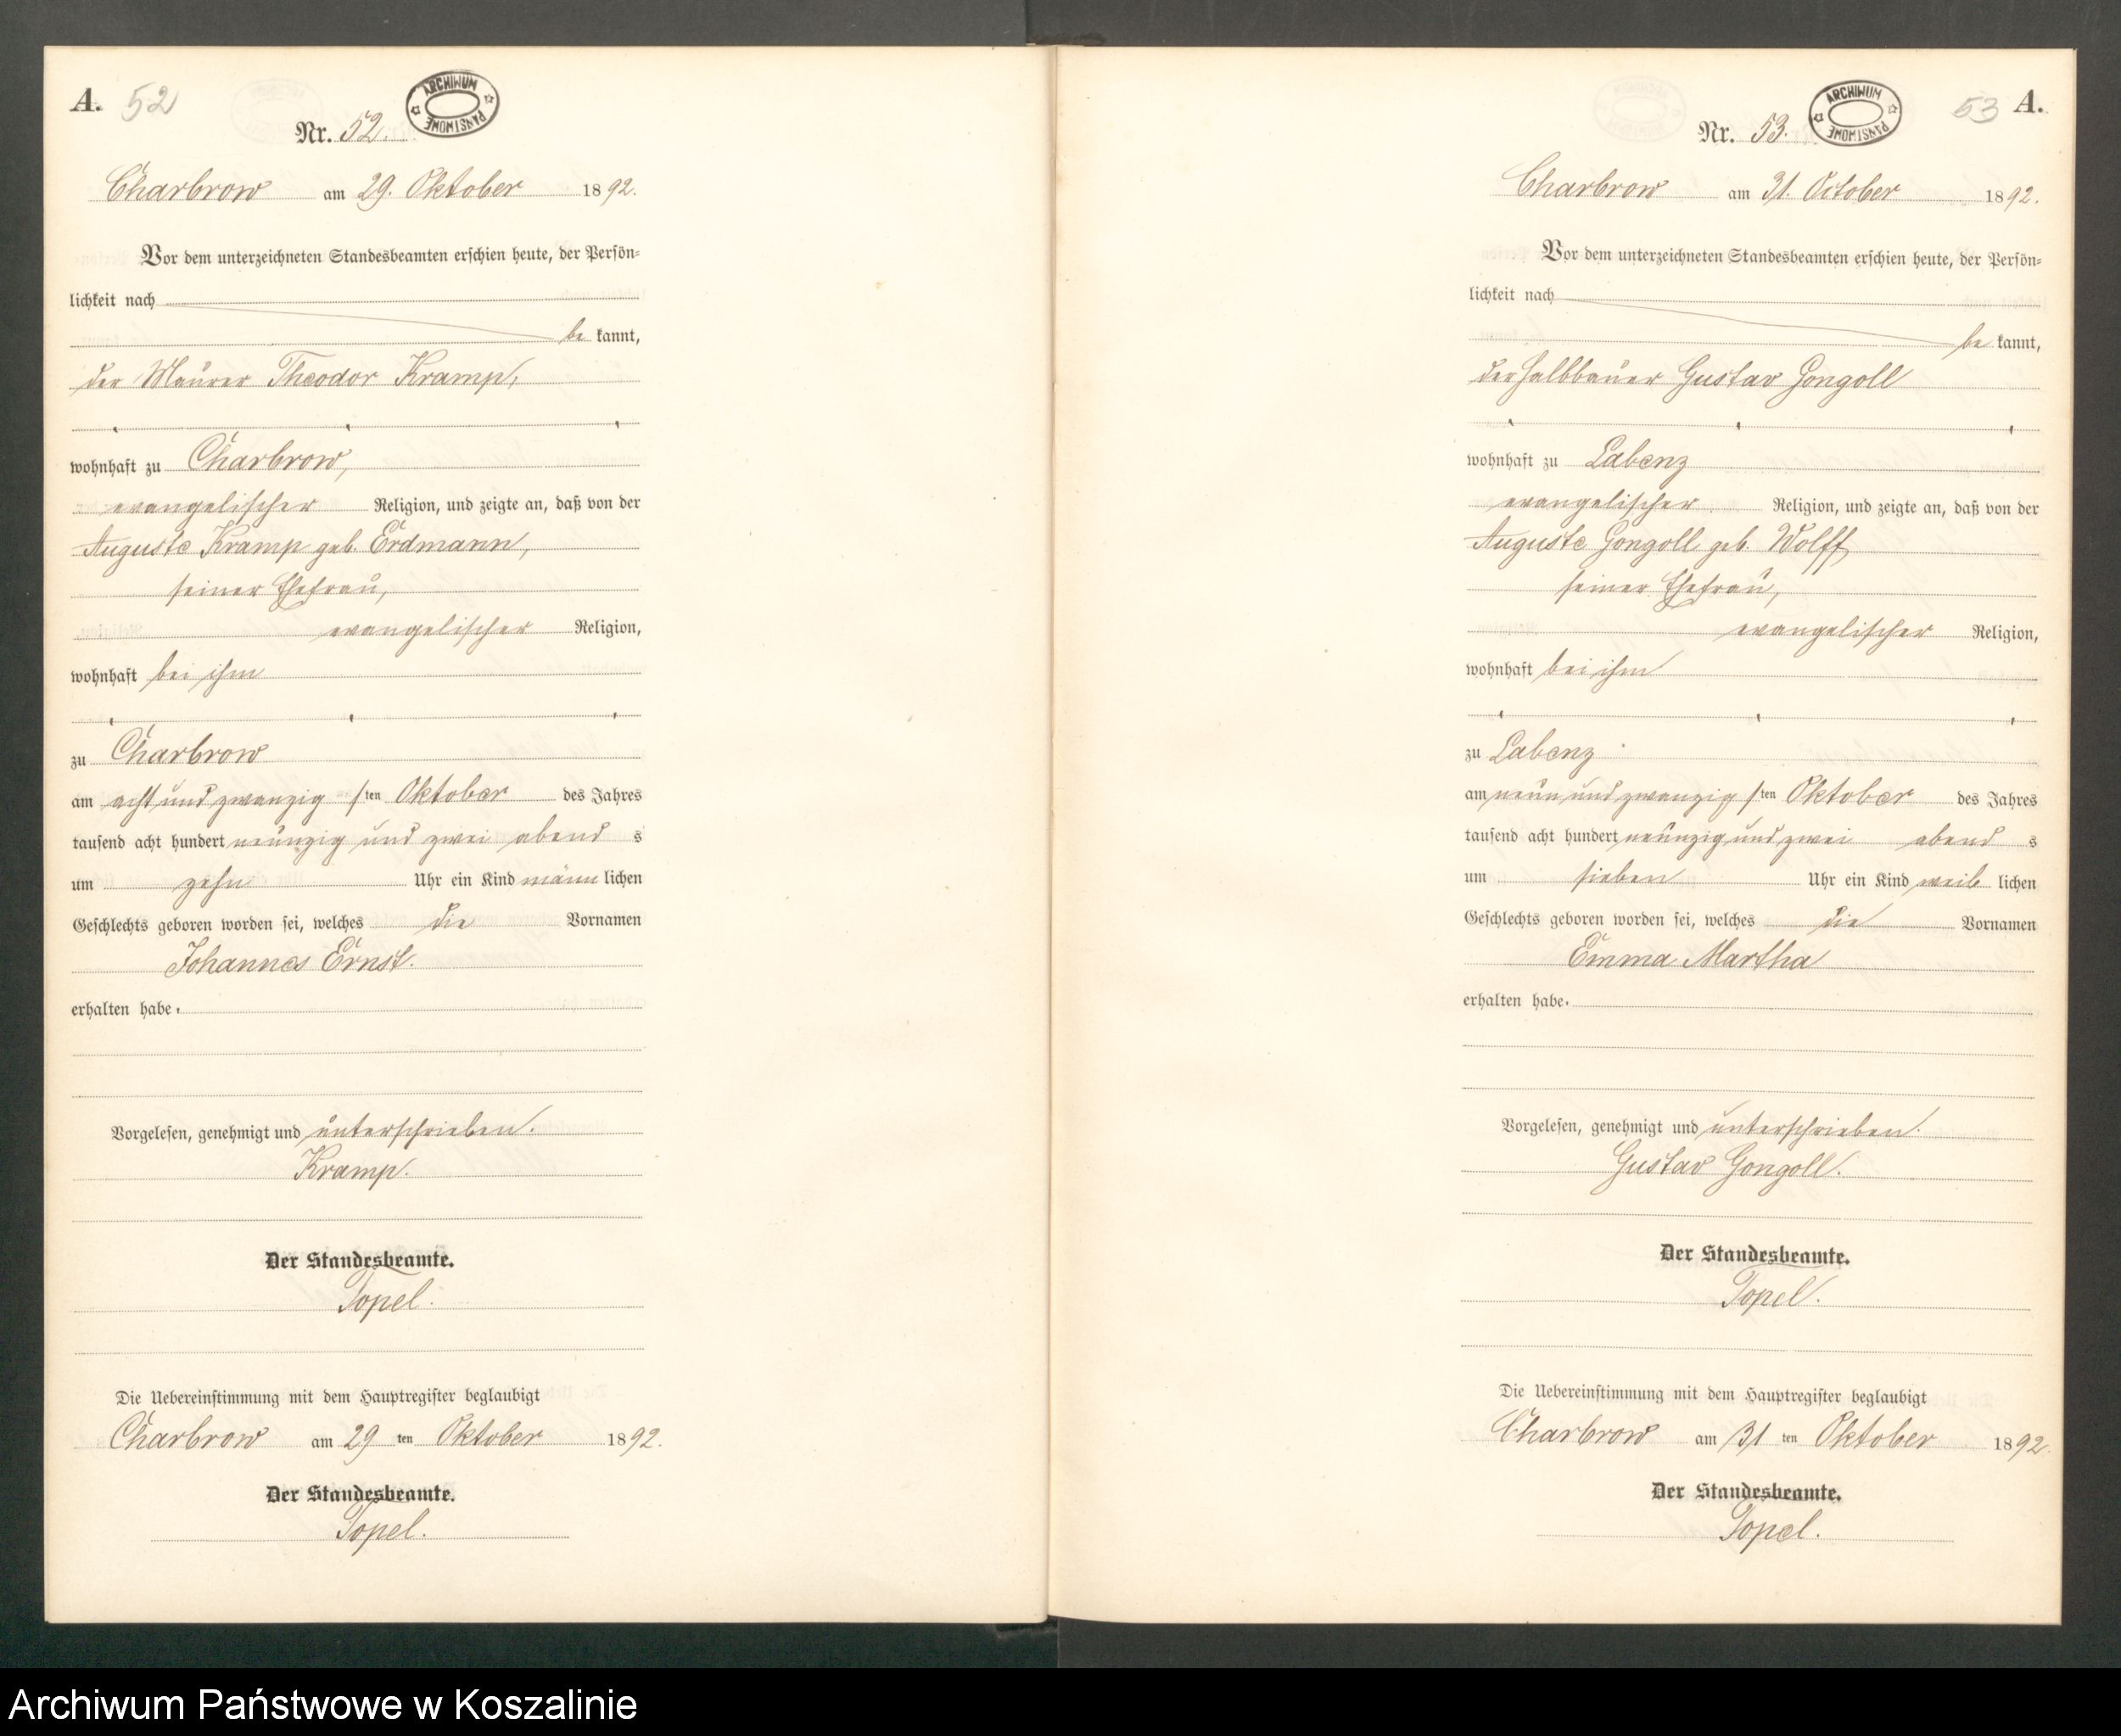 A. 52
ARCHIWUM PAŃSTWOWE
Nr. 52.
Charbrow am 29. Oktober 1892.
Vor dem unterzeichneten Standesbeamten erschien heute, der Persön-
lichkeit nach
be kannt,
der Maurer Theodor Kramp,
wohnhaft zu Charbrow,
evangelischer Religion, und zeigte an, daß von der
Auguste Kramp geb. Erdmann,
seiner Ehefrau,
evangelischer Religion,
wohnhaft bei ihm
zu Charbrow
am acht und zwanzig sten Oktober des Jahres
tausend acht hundert neunzig und zwei abend s
um zehn Uhr ein Kind männ lichen
Geschlechts geboren worden sei, welches die Vornamen
Johannes Ernst.
erhalten habe.
Vorgelesen, genehmigt und unterschrieben.
Kramp.
Der Standesbeamte.
Topel.
Die Uebereinstimmung mit dem Hauptregister beglaubigt
Charbrow am 29 ten Oktober 1892.
Der Standesbeamte.
Topel.
53 A.
ARCHIWUM PAŃSTWOWE
Nr. 53.
Charbrow am 31. October 1892.
Vor dem unterzeichneten Standesbeamten erschien heute, der Persön-
lichkeit nach
be kannt,
der Halbbauer Gustav Gongoll
wohnhaft zu Labenz
evangelischer Religion, und zeigte an, daß von der
Auguste Gongoll geb. Wolff,
seiner Ehefrau,
evangelischer Religion,
wohnhaft bei ihm
zu Labenz
am neun und zwanzig sten Oktober des Jahres
tausend acht hundert neunzig und zwei abend s
um sieben Uhr ein Kind weib lichen
Geschlechts geboren worden sei, welches die Vornamen
Emma Martha
erhalten habe.
Vorgelesen, genehmigt und unterschrieben.
Gustav Gongoll.
Der Standesbeamte.
Topel.
Die Uebereinstimmung mit dem Hauptregister beglaubigt
Charbrow am 31 ten Oktober 1892.
Der Standesbeamte.
Topel.
Archiwum Państwowe w Koszalinie